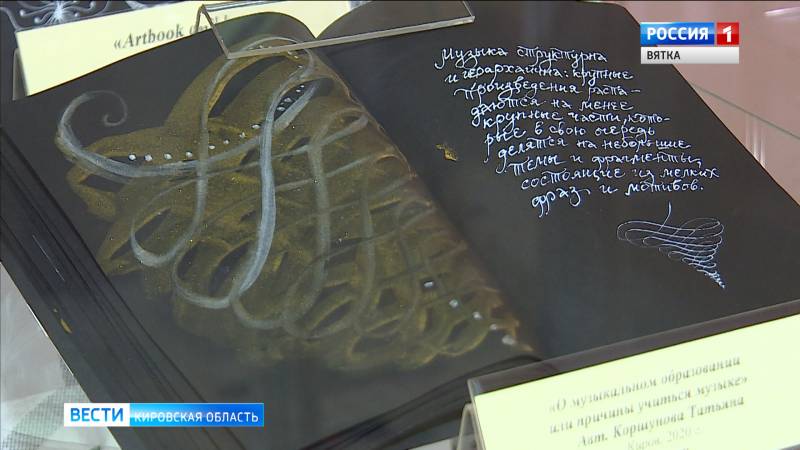 «Artbook
РОССИЯ 1
ВЯТКА
Музыка структурна
и иерархична: крупные
произведения распа-
даются на менее
крупные части, кото-
рые в свою очередь
делятся на небольшие
темы и фрагменты,
состоящие из мелких
фраз и мотивов.
«О музыкальном образовании
или причины учиться музыке»
Авт. Коршунова Татьяна
Киров, 2020 г.
ВЕСТИ КИРОВСКАЯ ОБЛАСТЬ